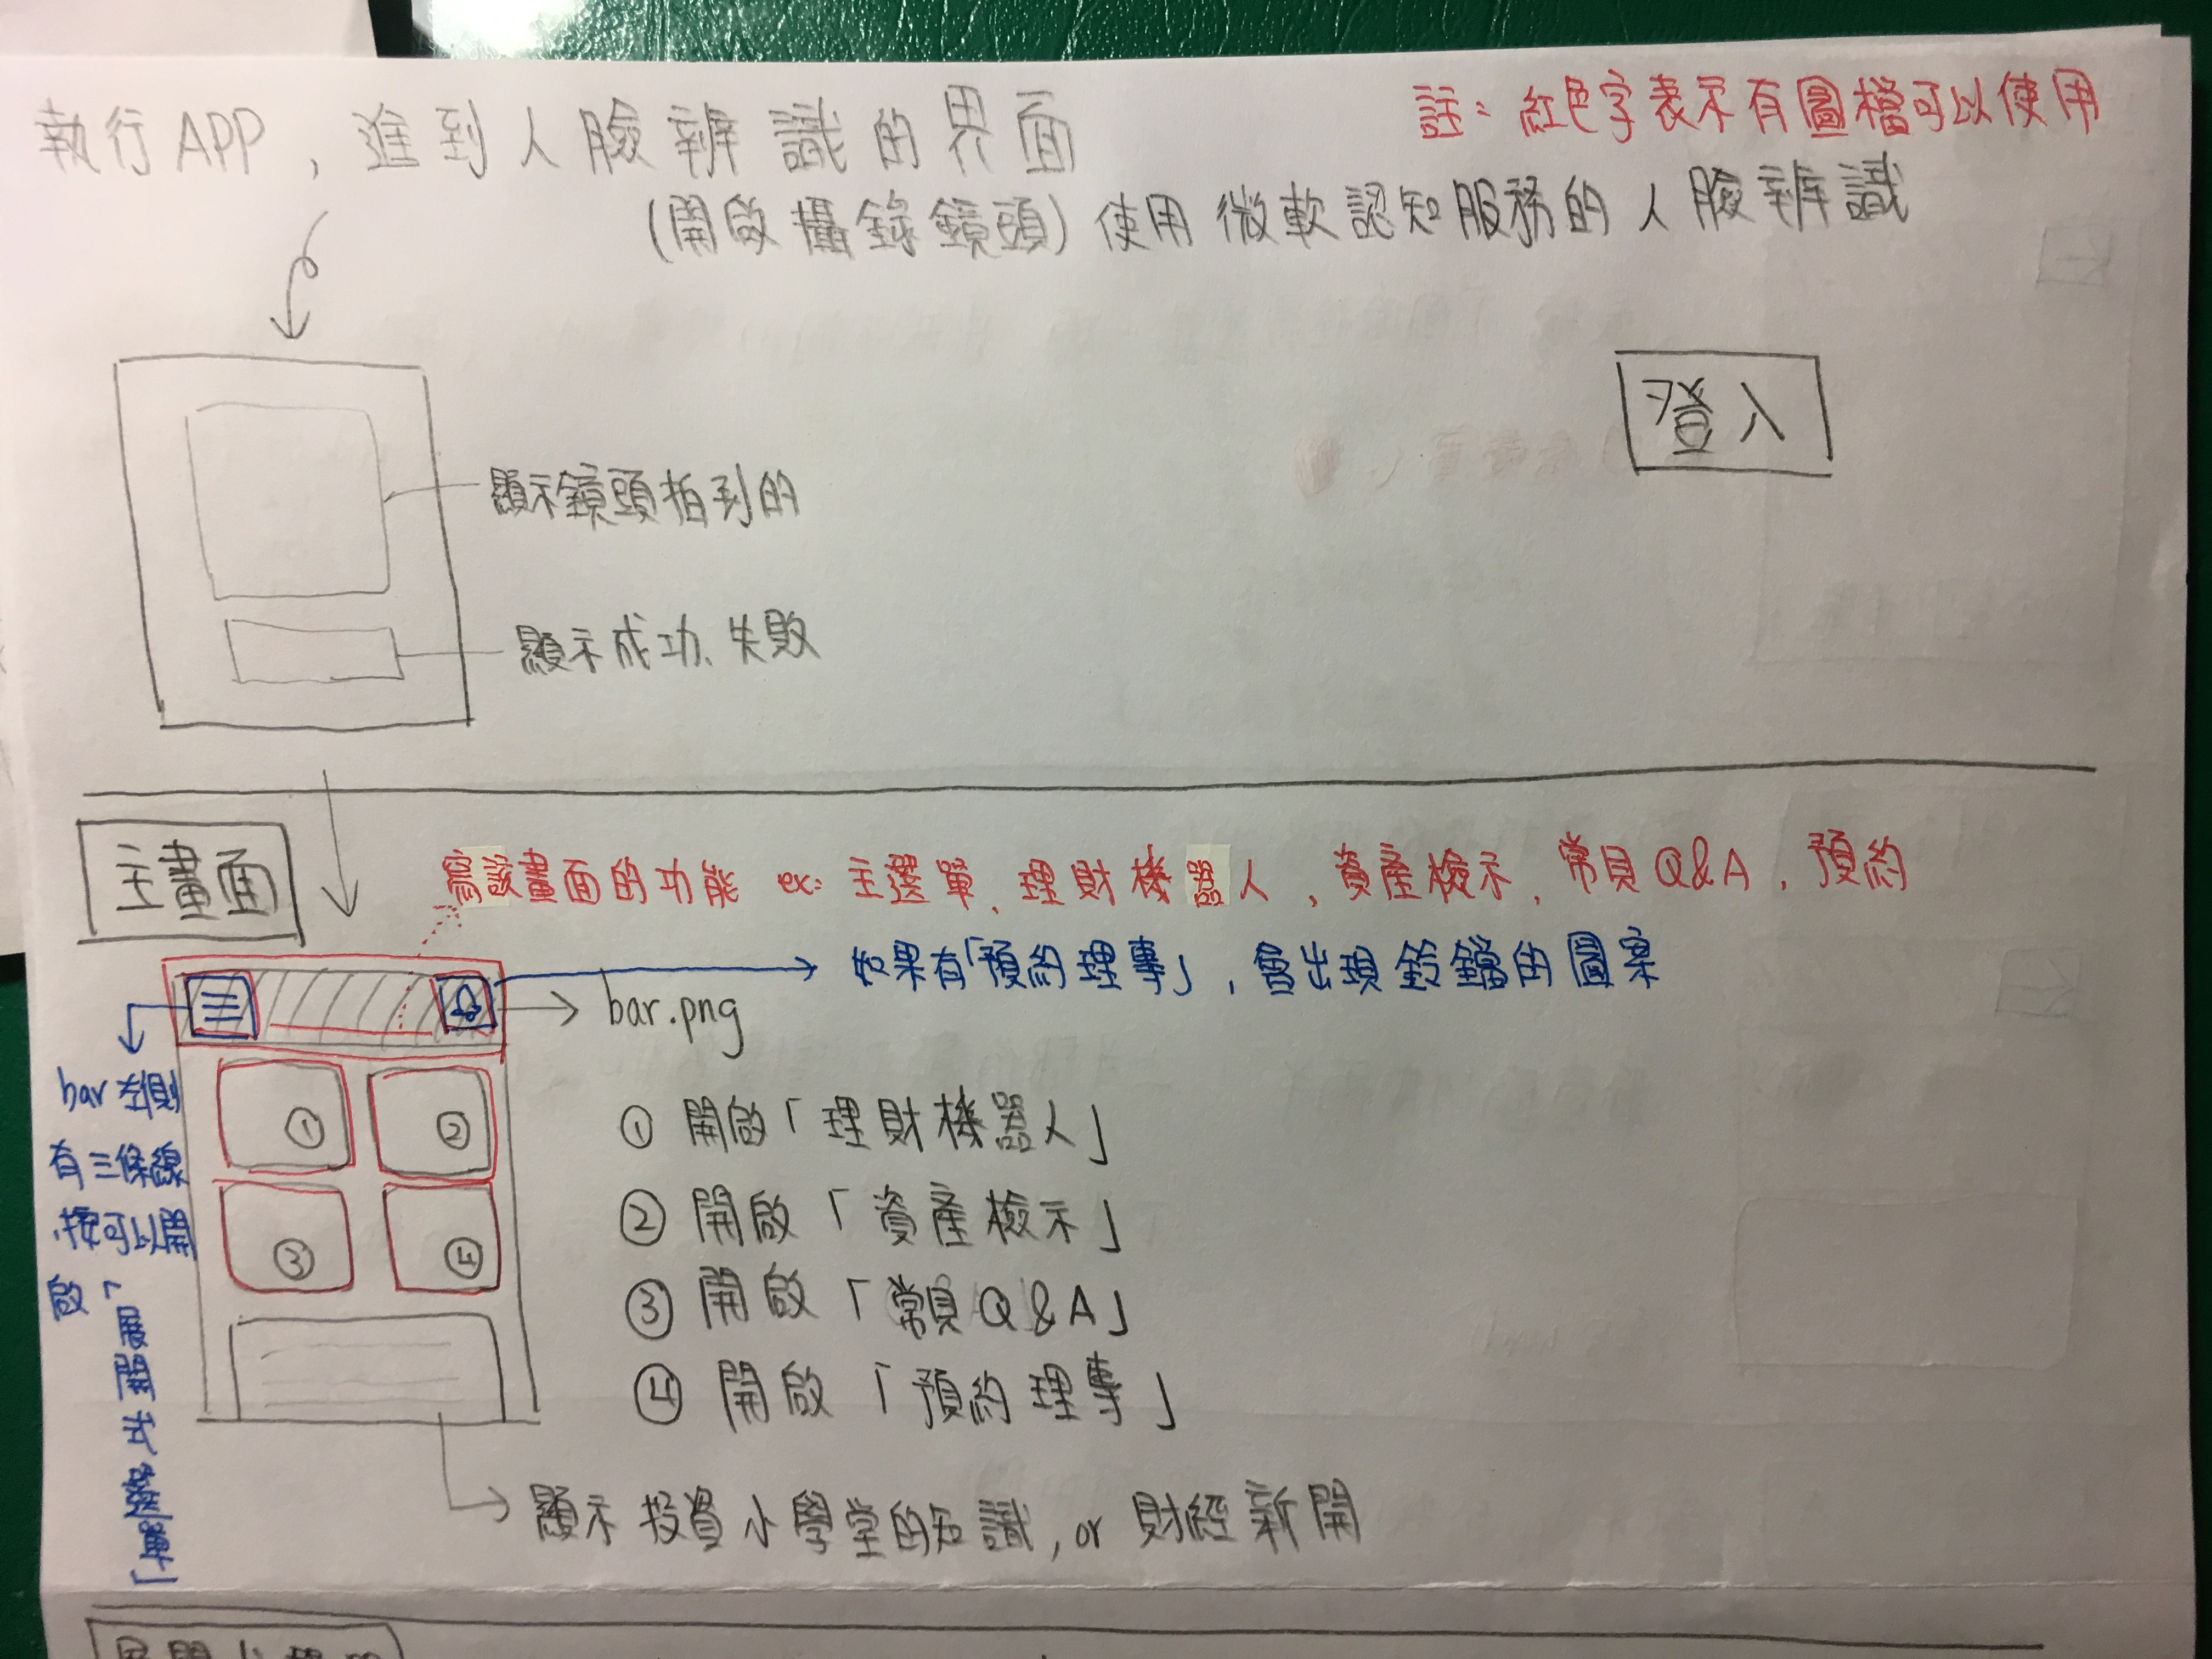 註：紅色字表示有圖檔可以使用
執行APP，進到人臉辨識的界面
(開啟攝錄鏡頭) 使用微軟認知服務的人臉辨識
登入
顯示鏡頭拍到的
顯示成功、失敗
主畫面
寫該畫面的功能 ex: 主選單、理財機器人，資產檢示，常見Q&A，預約
如果有「預約理專」，會出現鈴鐺的圖案
bar.png
bar 左側
有三條線
按可以開
啟「展開此選單」
① ② ③ ④
① 開啟「理財機器人」
② 開啟「資產檢示」
③ 開啟「常見Q&A」
④ 開啟「預約理專」
顯示投資小學堂的知識, or 財經新聞